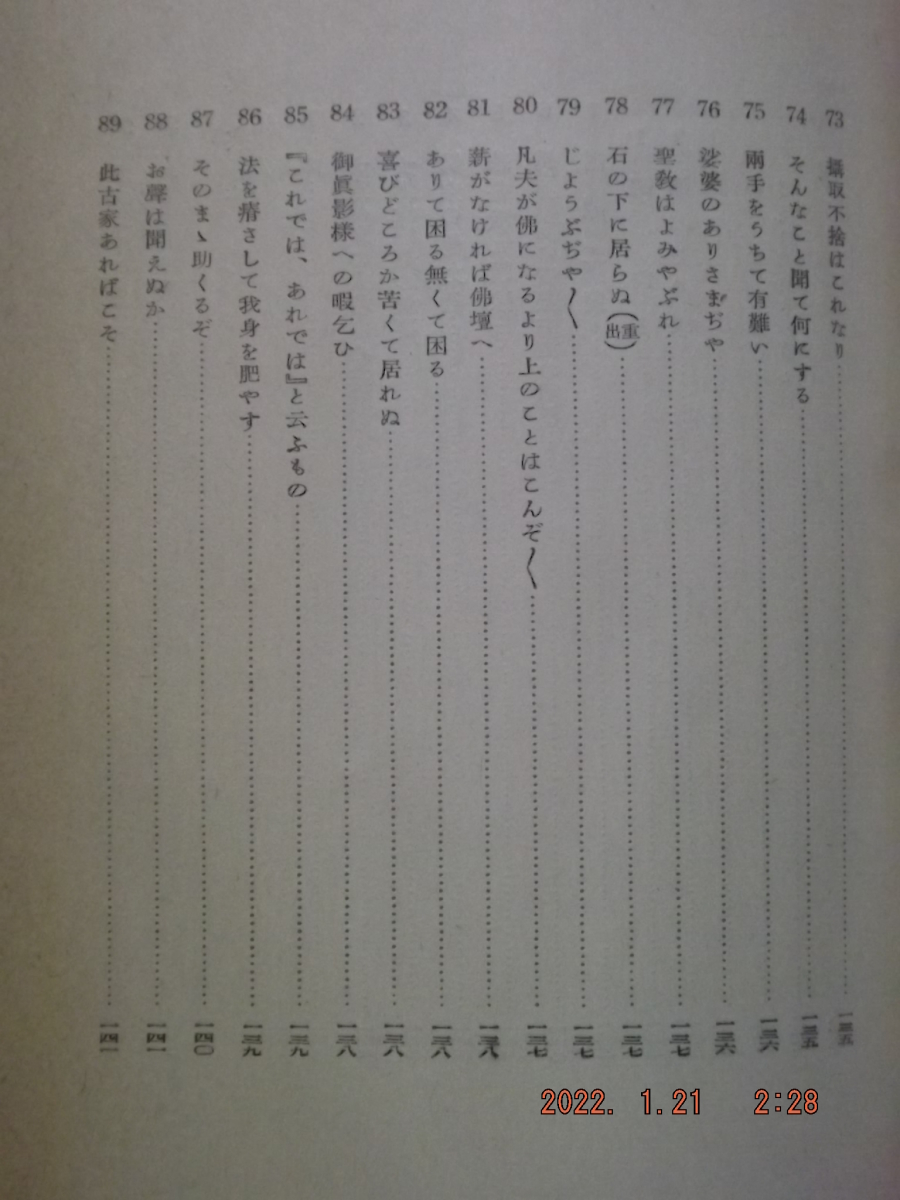 73 攝取不捨はこれなり…………一三五
74 そんなこと聞て何にする…………一三五
75 兩手をうちて有難い…………一三六
76 娑婆のありさまぢや…………一三六
77 聖敎はよみやぶれ…………一三七
78 石の下に居らぬ（重出）…………一三七
79 じようぶぢや〳〵…………一三七
80 凡夫が佛になるより上のことはこんぞ〳〵…………一三七
81 薪がなければ佛壇へ…………一三八
82 ありて困る無くて困る…………一三八
83 喜びどころか苦くて居れぬ…………一三八
84 御眞影樣への暇乞ひ…………一三八
85 『これでは、あれでは』と云ふもの…………一三九
86 法を瘠さして我身を肥やす…………一三九
87 そのまゝ助くるぞ…………一四〇
88 お聲は聞えぬか…………一四一
89 此古家あればこそ…………一四一
2022. 1.21 2:28